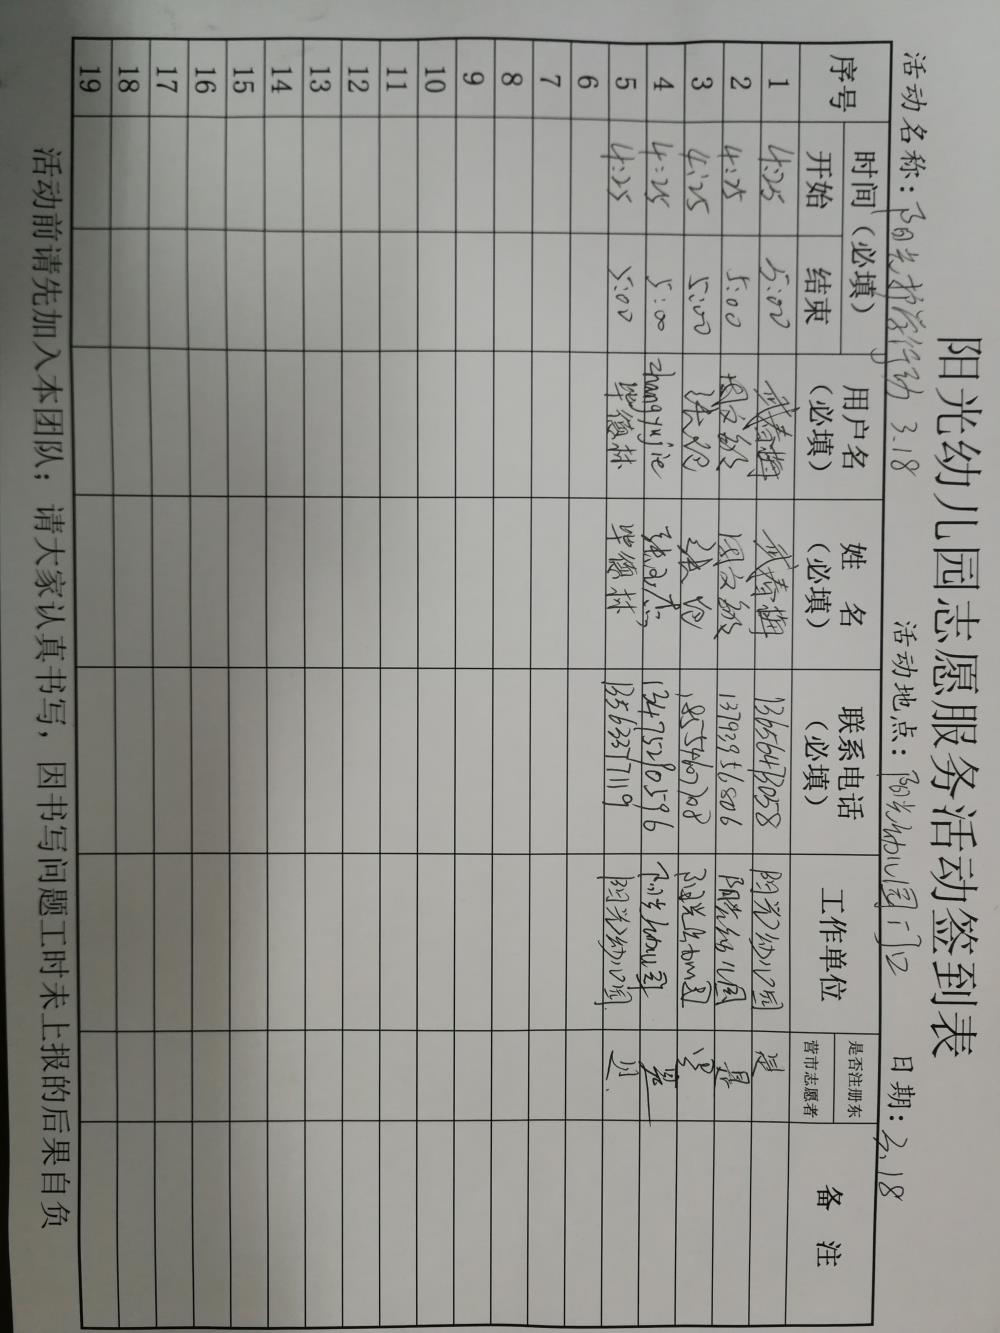 阳光幼儿园志愿服务活动签到表
活动名称：阳光护学行动 3.18 活动地点：阳光幼儿园门口 日期：3.18
序号 时间（必填） 用户名（必填） 姓名（必填） 联系电话（必填） 工作单位 是否注册东营市志愿者 备注
开始 结束
1 4:25 5:00 武春梅 武春梅 13656473058 阳光幼儿园 是
2 4:25 5:00 周文敏 周文敏 13793956806 阳光幼儿园 是
3 4:25 5:00 18554667708 阳光幼儿园 是
4 4:25 5:00 zhangyujie 13475290596 阳光幼儿园 是
5 4:25 5:00 毕德林 毕德林 13563377119 阳光幼儿园 是
6
7
8
9
10
11
12
13
14
15
16
17
18
19
活动前请先加入本团队；请大家认真书写，因书写问题工时未上报的后果自负